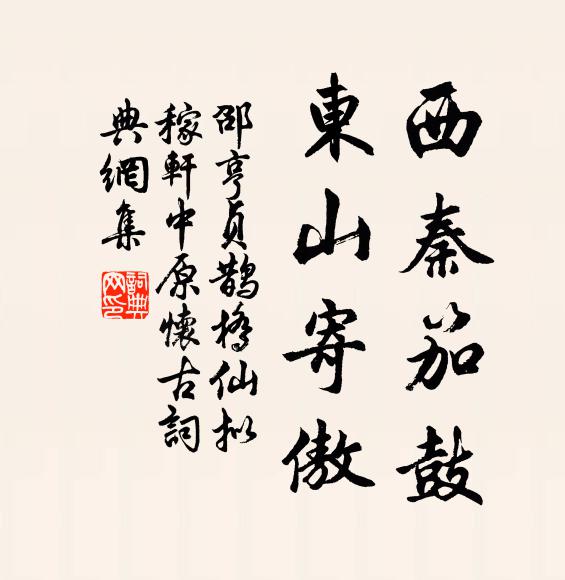 西秦笳鼓
東山寄傲
邵亨貞鵲橋仙擬
稼軒中原懷古詞
典網集
詞典
网印